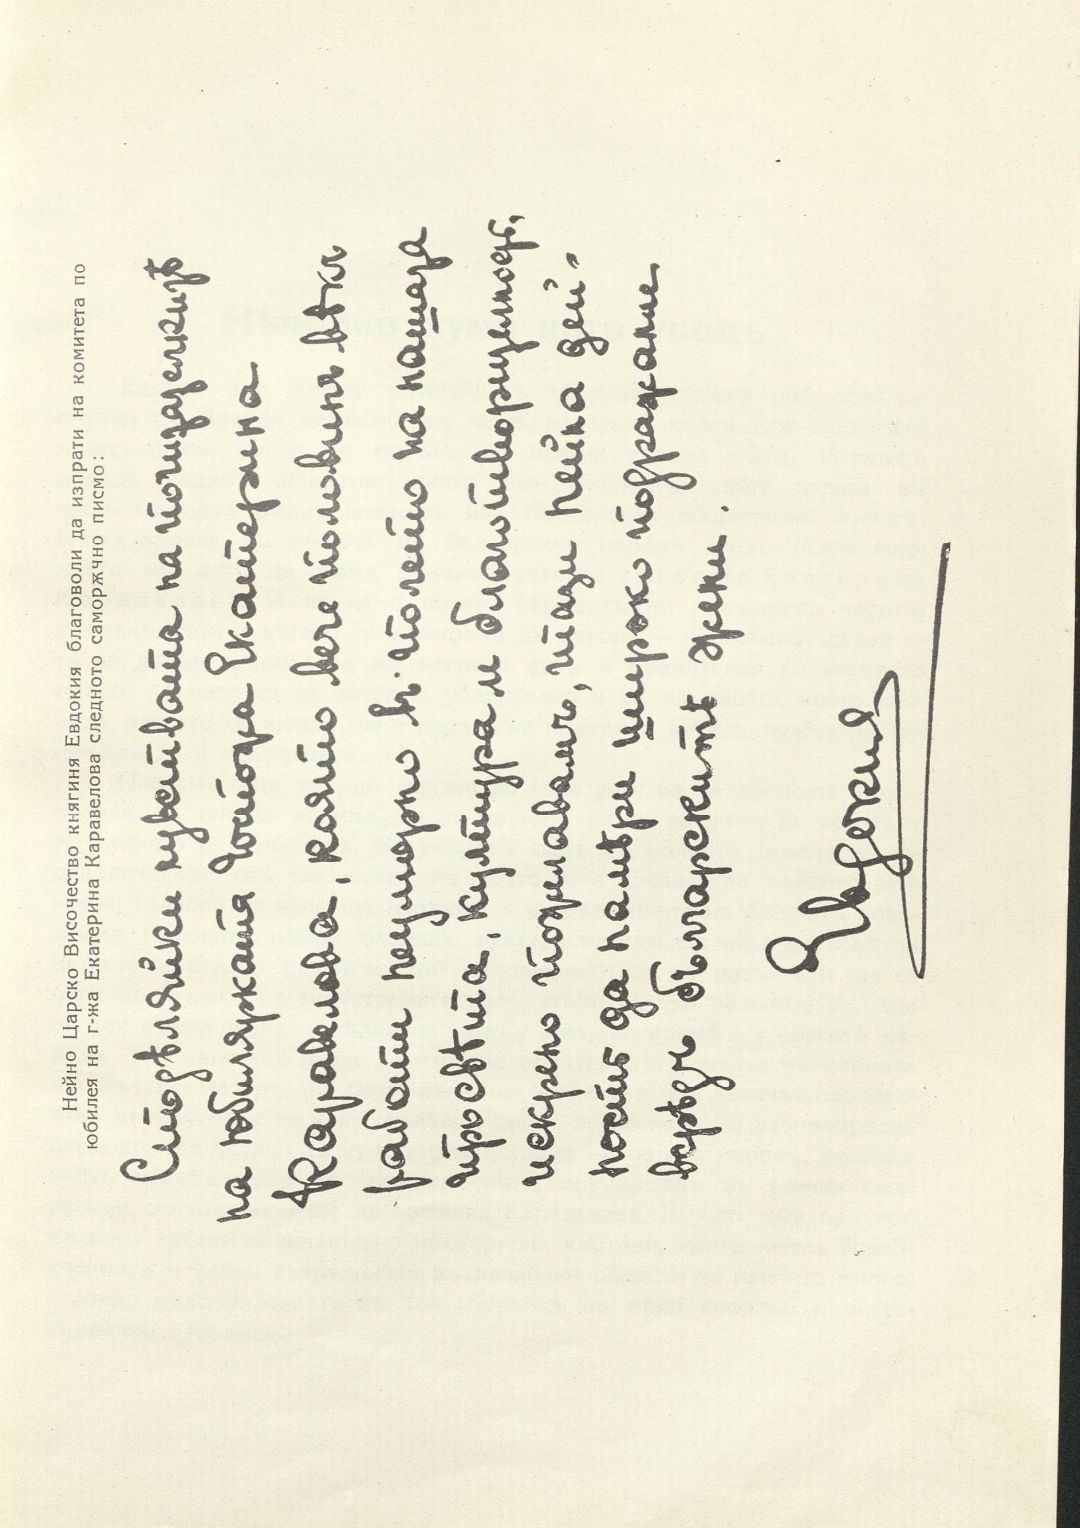 Нейно Царско Височество княгиня Евдокия благоволи да изпрати на комитета по
юбилея на г-жа Екатерина Каравелова следното саморѫчно писмо:
Сподѣляйки чувствата на почидателкитѣ
на юбилярката Госпожа Екатерина
Каравелова, която вече половинъ вѣкъ
работи неуморно въ полето на нашада
просвѣта, култура и благотворителность,
искрено пожелавамъ, тази нейна дей-
ность да намѣри широко подражание
всрѣдъ българскитѣ жени.
Евдокия